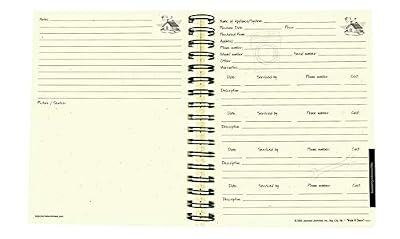 Notes:
Picture / Sketch:
Name of Appliance/System:
Purchase Date: Price:
Purchased From:
Address:
Phone number:
Model number: Serial number:
Other:
Warranties:
Date: Serviced by: Phone number: Cost:
Description:
Date: Serviced by: Phone number: Cost:
Description:
Date: Serviced by: Phone number: Cost:
Description:
Date: Serviced by: Phone number: Cost:
Description: